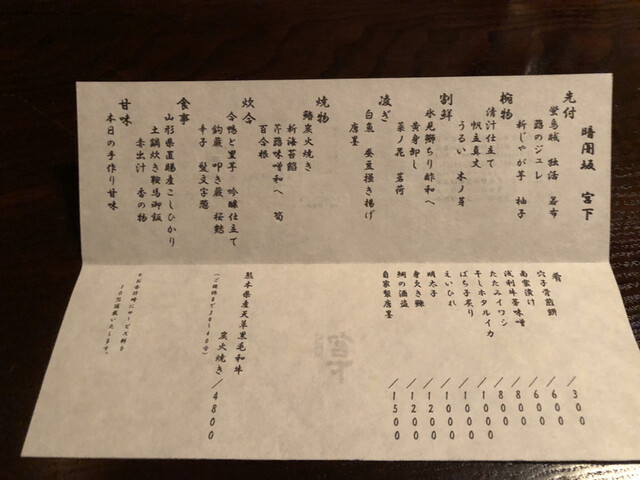 暗闇坂 宮下
先付
蛍烏賊 独活 若布
蕗のジュレ
新じゃが芋 柚子
椀物
清汁仕立て
帆立真丈
うるい 木ノ芽
割鮮
氷見鰤ちり酢和へ
黄身卸し
菜ノ花 茗荷
凌ぎ
白魚 蚕豆掻き揚げ
唐墨
焼物
鰆炭火焼き
新海苔餡
芹蕗味噌和へ 筍
百合根
炊合
合鴨と里芋 吟醸仕立て
鈎蕨 叩き蕨 桜麩
辛子 髪文字葱
食事
山形県直賜産こしひかり
土鍋炊き鞍馬御飯
赤出汁 香の物
甘味
本日の手作り甘味
肴
穴子骨煎餅 /300
南蛮漬け /600
浅利牛蒡味噌 /600
たたみイワシ /800
干しホタルイカ /800
ばち子炙り /1000
えいひれ /1000
明太子 /1000
身欠き鰊 /1200
鯛の酒盗 /1200
自家製唐墨 /1500
熊本県産天草黒毛和牛
炭火焼き/4800
(ご提供まで30〜40分)
*お会計時にサービス料を
10%頂戴いたします。